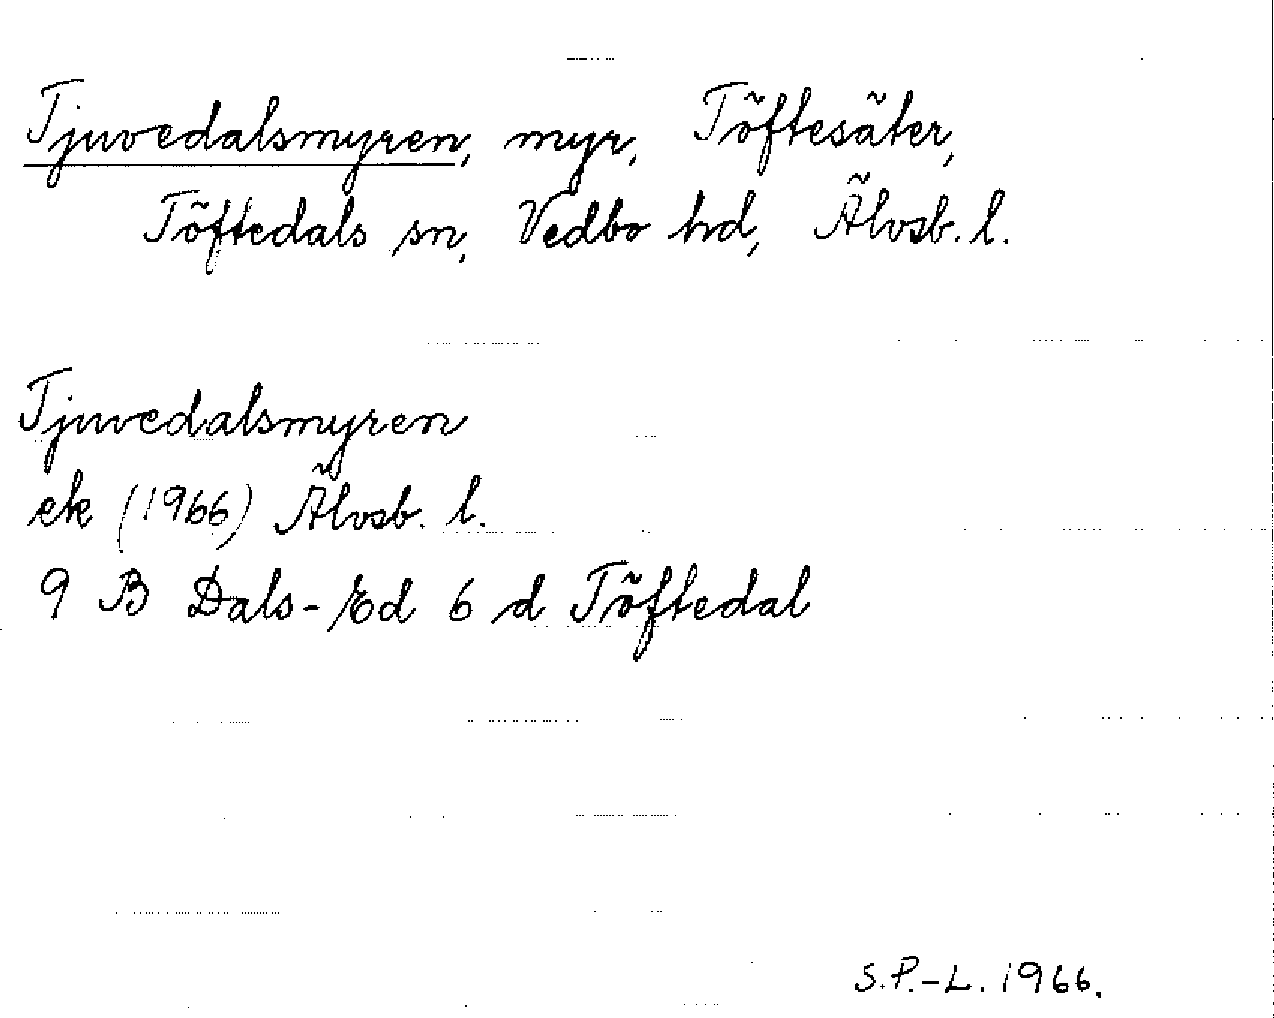 Tjuvedalsmyren, myr, Töftesäter,
Töftedals sn, Vedbo hd, Älvsb. l.
Tjuvedalsmyren
ek (1966) Älvsb. l.
9 B Dals-Ed 6 d Töftedal
S.P.-L. 1966.